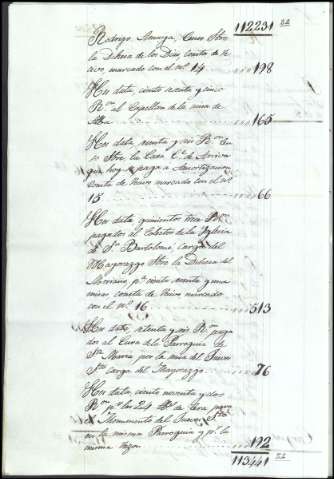 112231 22
Rodrigo Amaya, Censo sobre
la Dehesa de los Dias, consta de re
civo, marcado con el nº 14 198
Es data, ciento sesenta y cinco
Rs al Capellan de la
Alba 165
Es data, sesenta y seis Rs
so sobre la Casa Cª de Arriva
que hoy se paga a Amortizacion
Consta de recivo marcado con el nº
15 66
Es data, quinientos trece Rs
pagados al Colector de la Iglesia
de Sn Bartolome, carga del
Mayorazgo sobre la Dehesa del
Mortano, pr ciento y una
misas consta de recivo marcado
con el nº 16 513
Es data, setenta y seis Rs paga
dos al Cura de la Parroquia de
Sta Maria por la misa del Jueves
Sto carga del Mayorazgo 76
Es data, ciento noventa y dos
Rs pr las 24 de Cera para
el Monumento del Jueves Sto
en la misma Parroquia y pr la
misma razon 192
113441 22